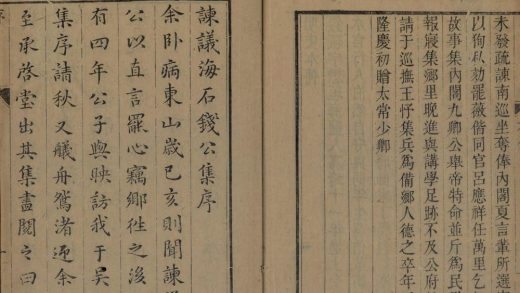 未發疏諫南巡坐奪俸內閣夏言輩所選
以徇私劾罷薇偕同官呂應祥任萬里乞
故事集內閣九卿公舉帝特命並斥為民
報寢集鄉里晚進與講學足跡不及公府
請于巡撫王忬集兵為備鄉人德之卒年
隆慶初贈太常少卿
諫議海石錢公集序
余臥病東山歲己亥則聞諫
公以直言罷心竊鄉徃之後
有四年公子與映訪我于吳
集序請秋又艤舟鴛渚迎余
至承啓堂出其集盡閱之曰